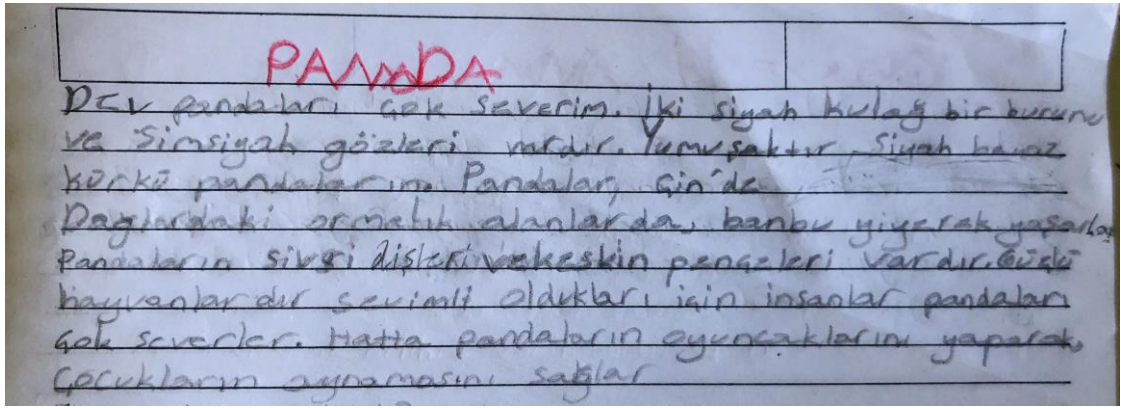 PANDA
Dev pandaları çok severim. İki siyah kulağ bir burunu
ve Simsiyah gözleri vardır. Yumuşaktır Siyah beyaz
kürkü pandaların. Pandalar, Çin'de
Dağlardaki ormalık alanlarda, banbu yiyerek yaşarlar
Pandaların sivri dişleri ve keskin pençeleri vardır. Güçlü
hayvanlardır sevimli oldukları için insanlar pandaları
çok severler. Hatta pandaların oyuncaklarını yaparak,
Çocukların oynamasını sağlar